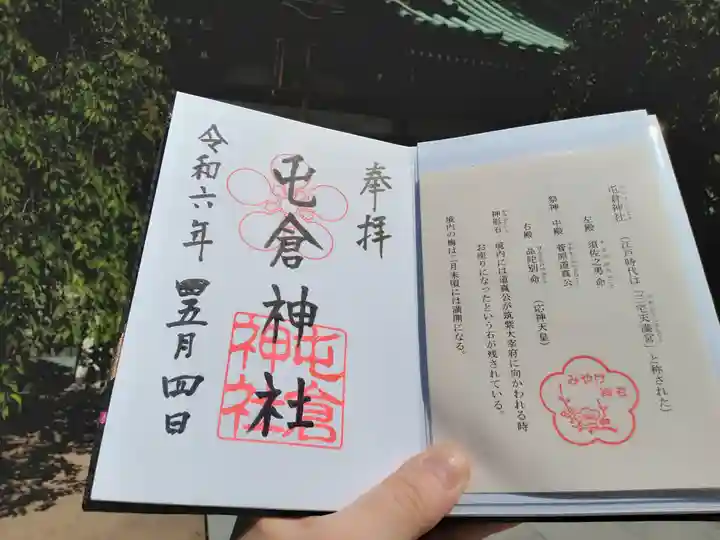 奉拝
屯倉神社
屯倉
神社
令和六年四五月四日
屯倉神社（江戸時代は「三宅天満宮」と称された）
左殿 須佐之男命
祭神 中殿 菅原道真公
右殿 品陀別命（応神天皇）
神形石 境内には道真公が筑紫大宰府に向かわれる時
お座りになったという石が残されている。
境内の梅は二月末頃には満開になる。
みやけ